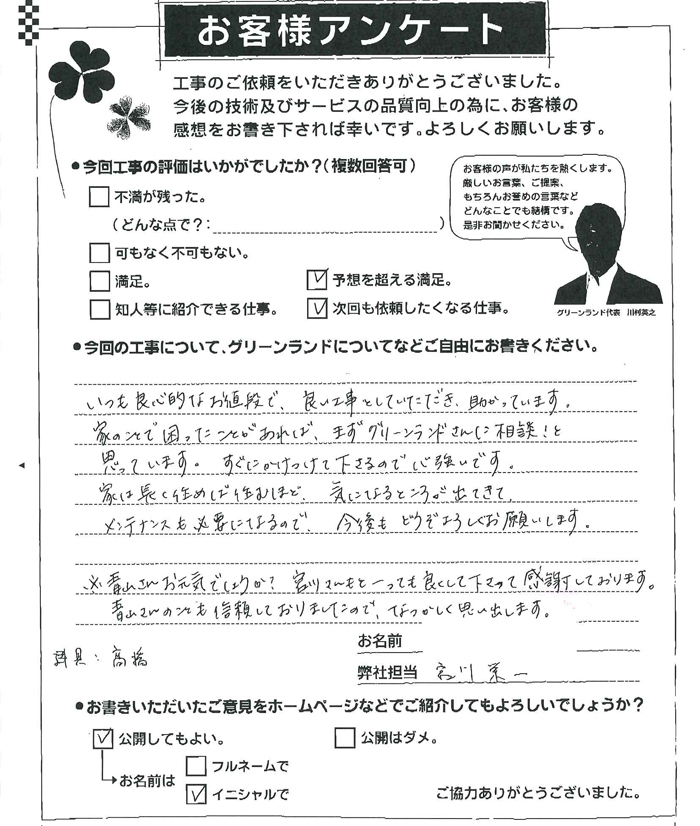 お客様アンケート
工事のご依頼をいただきありがとうございました。
今後の技術及びサービスの品質向上の為に、お客様の
感想をお書き下されば幸いです。よろしくお願いします。
●今回工事の評価はいかがでしたか？（複数回答可）
不満が残った。
（どんな点で？：　　　　　）
可もなく不可もない。
満足。
予想を超える満足。
知人等に紹介できる仕事。
次回も依頼したくなる仕事。
お客様の声が私たちを熱くします。
厳しいお言葉、ご提案、
もちろんお誉めの言葉など
どんなことでも結構です。
是非お聞かせください。
グリーンランド代表　川村英之
●今回の工事について、グリーンランドについてなどご自由にお書きください。
いつも良心的なお値段で、良い工事をしていただき、助かっています。
家のことで困ったことがあれば、まずグリーンランドさんに相談！と
思っています。すぐにかけつけて下さるので心強いです。
家は長く住めば住むほど、気になるところが出てきて、
メンテナンスも必要になるので、今後もどうぞよろしくお願いします。
※青山さんお元気でしょうか？宮川さんもとっても良くして下さって感謝しております。
青山さんのことも信頼しておりましたので、なつかしく思い出します。
お名前
高橋
弊社担当　宮川
●お書きいただいたご意見をホームページなどでご紹介してもよろしいでしょうか？
公開してもよい。
公開はダメ。
お名前は
フルネームで
イニシャルで
ご協力ありがとうございました。